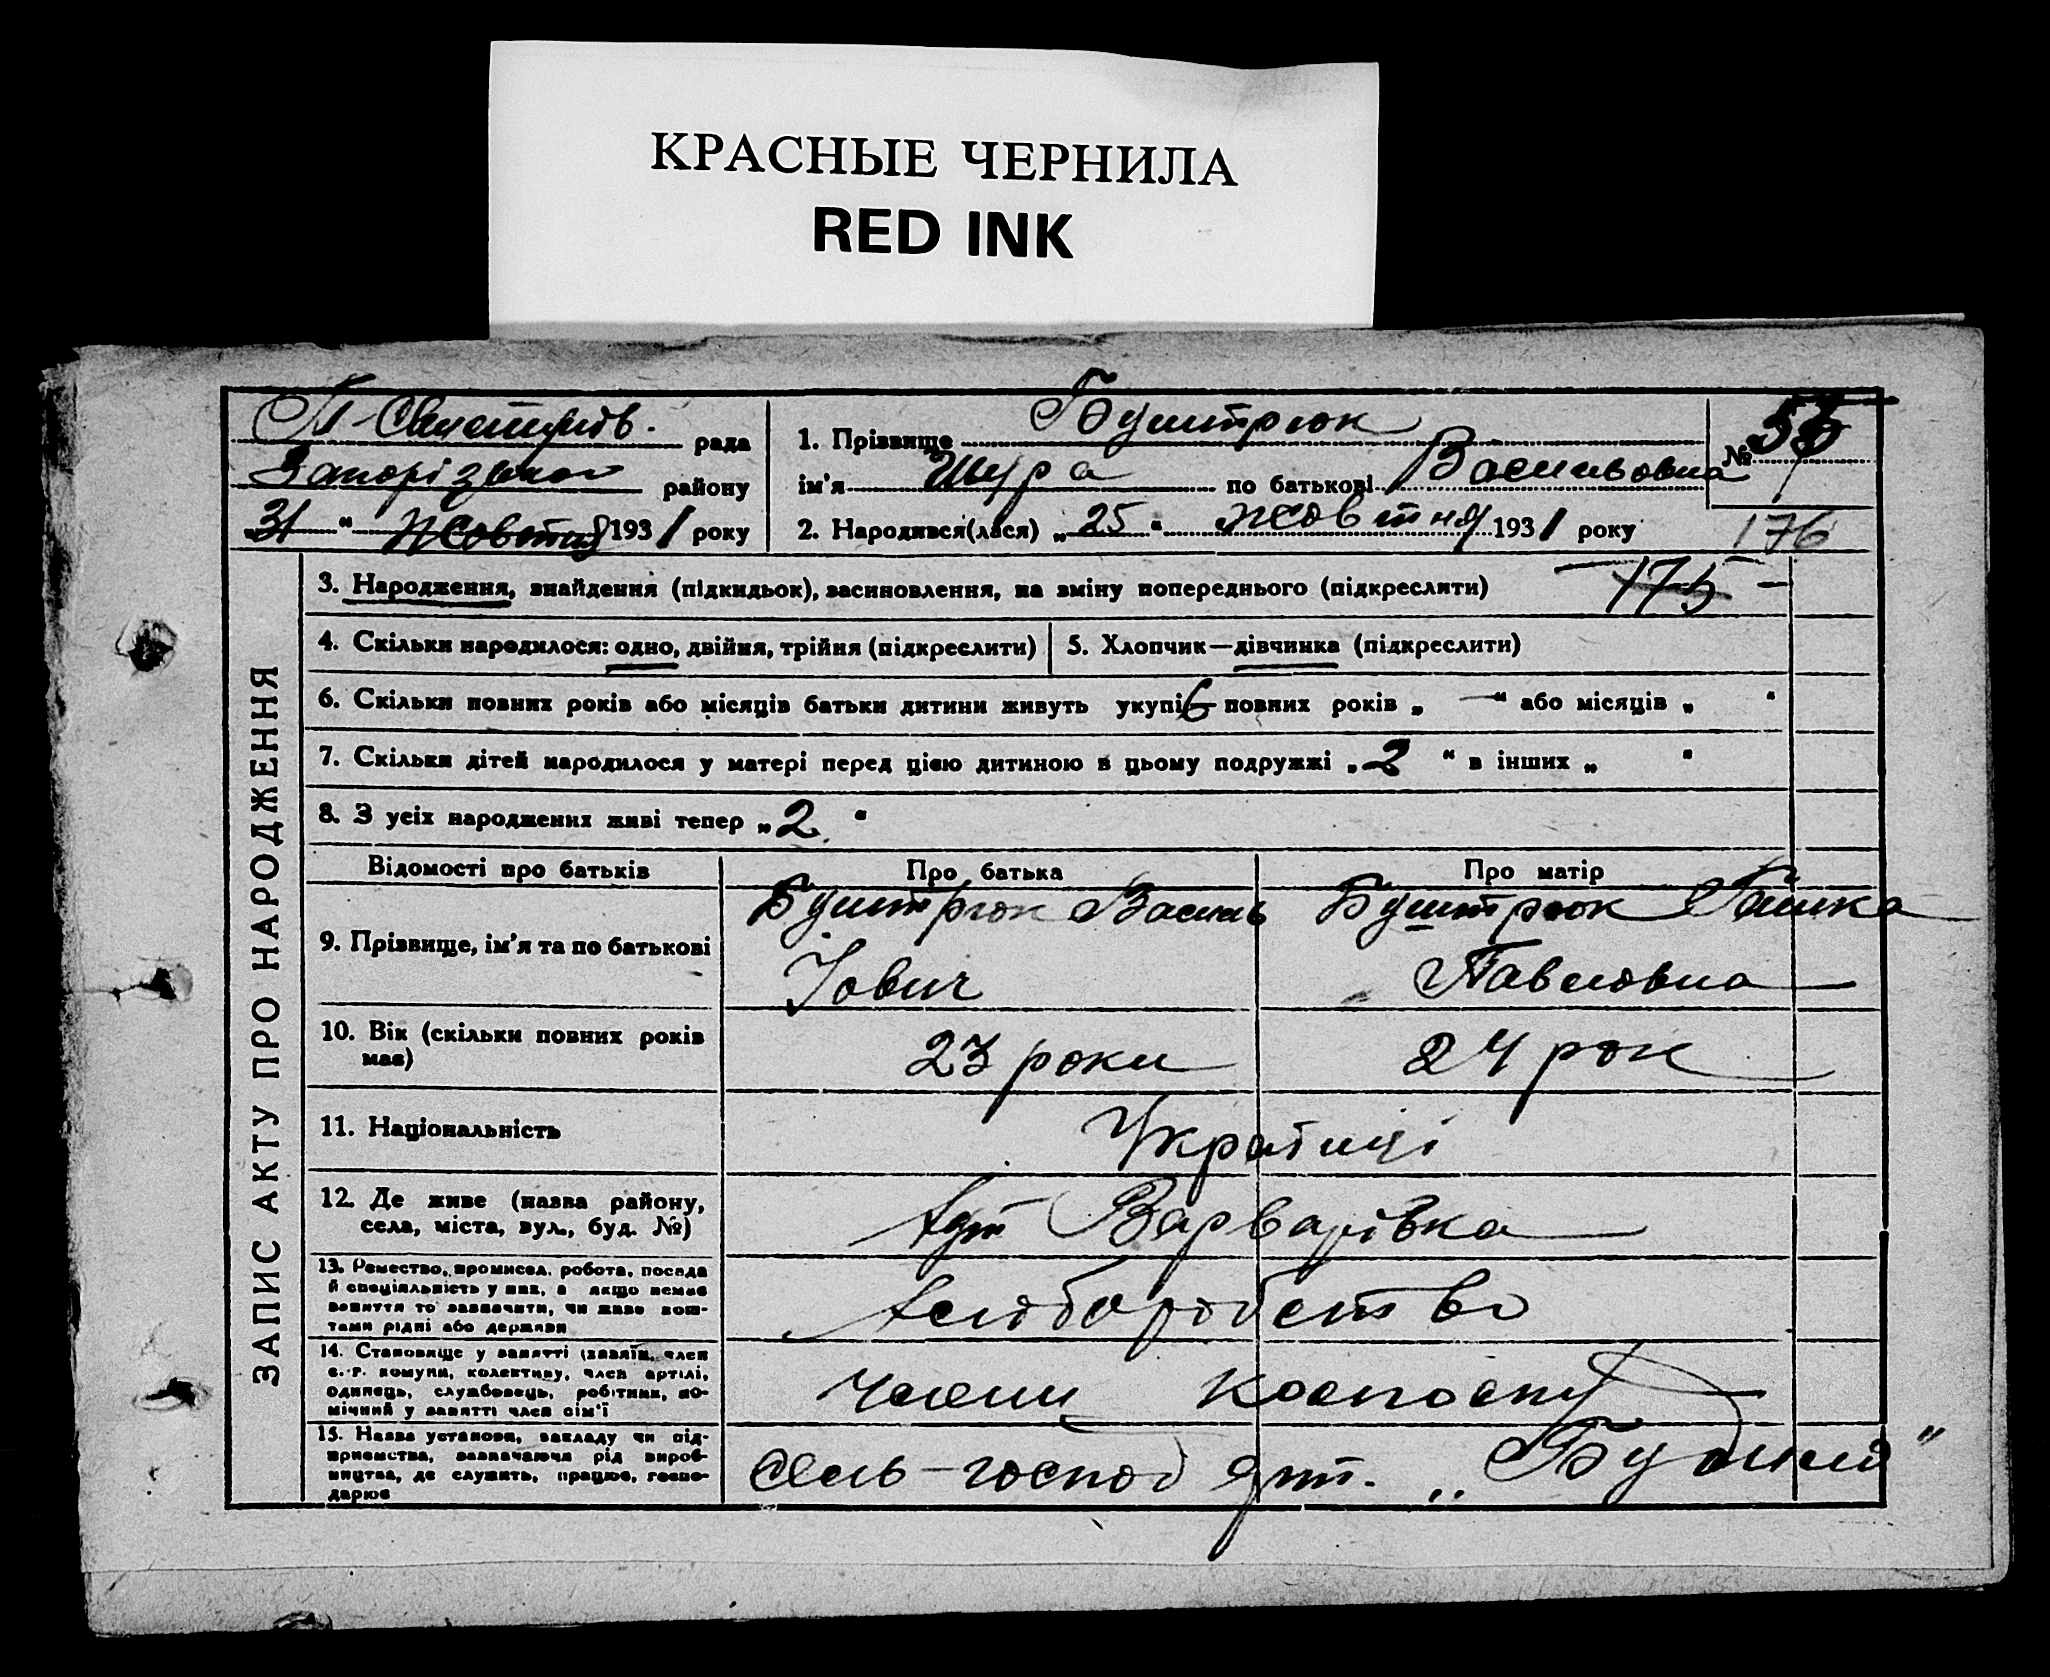 КРАСНЫЕ ЧЕРНИЛА
RED INK
рада
Запорізького району
31 “ Жовтня 1931 року
1. Прізвище Буштрюк
ім'я Шура по батькові Васильовна
2. Народився(лася) „25“ жовтня 1931 року
№ 55
176
175
ЗАПИС АКТУ ПРО НАРОДЖЕННЯ
3. Народження, знайдення (підкидьок), засиновлення, на зміну попереднього (підкреслити)
4. Скільки народилося: одно, двійня, трійня (підкреслити)
5. Хлопчик—дівчинка (підкреслити)
6. Скільки повних років або місяців батьки дитини живуть укупі 6 повних років „ —“ або місяців „ “
7. Скільки дітей народилося у матері перед цією дитиною в цьому подружжі „2 “ в інших „ “
8. З усіх народжених живі тепер „2 “
Відомості про батьків
Про батька
Про матір
9. Прізвище, ім'я та по батькові
Буштрюк Василь
Іович
Буштрюк Ганка
Павловна
10. Вік (скільки повних років
має)
23 роки
24 рок
11. Національність
Українці
12. Де живе (назва району,
села, міста, вул., буд. №)
хут Варварівка
13. Ремество, промисел, робота, посада
й спеціяльність у них, а якщо немає
заняття то зазначити, чи живе кош-
тами рідні або держави
хліборобство
14. Становище у занятті (хазяїн, член
с.-г. комуни, колективу, член артілі,
одинець, службовець, робітник, по-
мічний у занятті член сім'ї
члени
15. Назва установи, закладу чи під-
приємства, зазначаючи рід вироб-
ництва, де служить, працює, госпо-
дарює
Сель-господ арт.